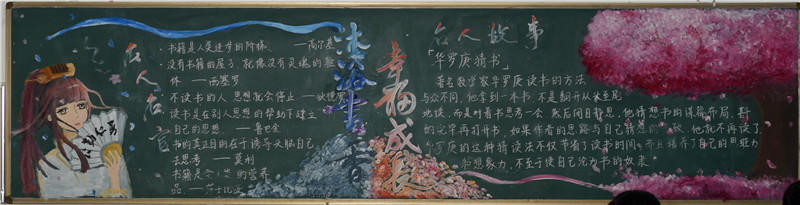 名人名言
·书籍是人类进步的阶梯. ——高尔基
·没有书籍的屋子，就像没有灵魂的躯
体 ——西塞罗
不读书的人 思想就会停止 ——狄德罗
读书是在别人思想的帮助下建立
自己的思想 ——鲁巴金
书的真正目的在于诱导头脑自己
去思考 ——莫利
书籍是 的营养
品 ——莎士比亚
书香
幸福成长
名人故事
「华罗庚猜书」
著名数学家华罗庚读书的方法
与众不同，他拿到一本书，不是翻开从头至尾
地读，而是对着书思考一会，然后闭目静思，他猜想书的谋篇布局，斟
酌完毕再打开书，如果作者的思路与自己猜想的一致，他就不再读了
华罗庚的这种猜读法不仅节省了读书的时间，而且培养了自己的思维力
和想象力，不至于使自己沦为书的奴隶